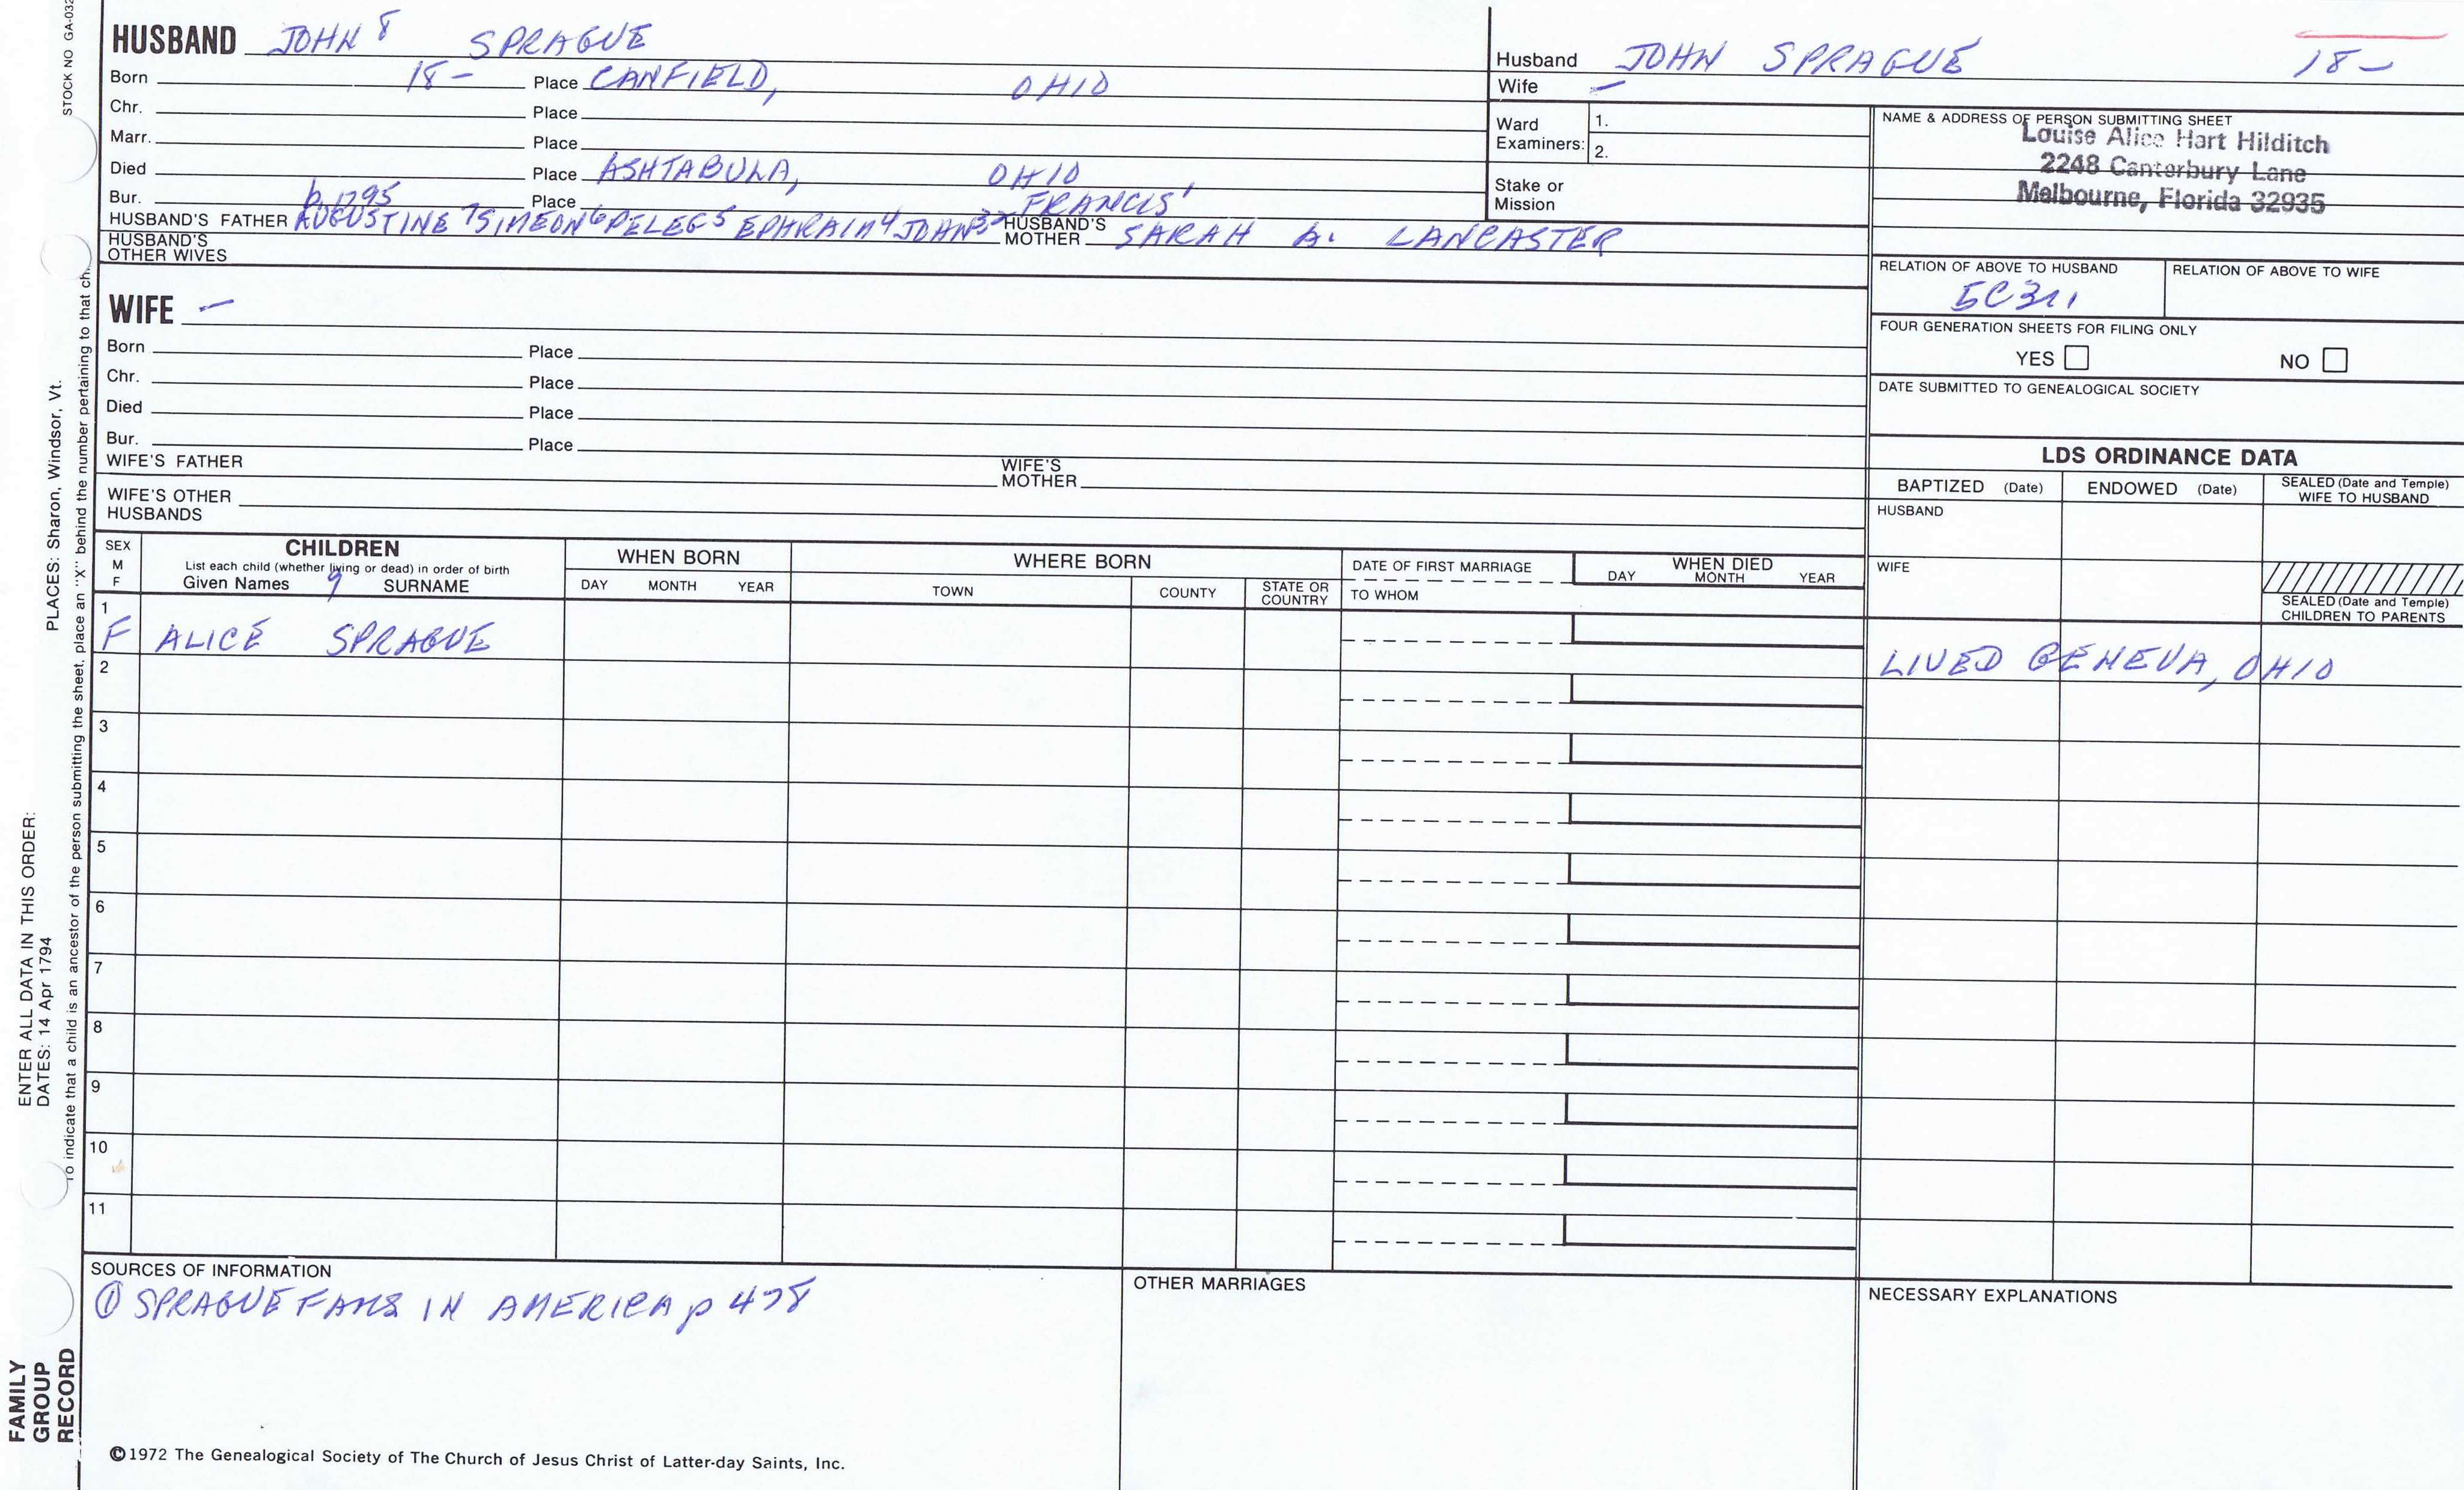 STOCK NO GA-032
HUSBAND JOHN 8 SPRAGUE
Born 18- Place CANFIELD, OHIO
Chr. Place
Marr. Place
Died Place ASHTABULA, OHIO
Bur. Place
b 1795 FRANCIS 1
HUSBAND'S FATHER AUGUSTINE 7 SIMEON 6 PELEG 5 EPHRAIM 4 JOHN 3 2 HUSBAND'S MOTHER SARAH A. LANCASTER
HUSBAND'S OTHER WIVES
Husband JOHN SPRAGUE 18-
Wife -
Ward Examiners: 1.
2.
Stake or Mission
NAME & ADDRESS OF PERSON SUBMITTING SHEET
Louise Alice Hart Hilditch
2248 Canterbury Lane
Melbourne, Florida 32935
RELATION OF ABOVE TO HUSBAND RELATION OF ABOVE TO WIFE
FOUR GENERATION SHEETS FOR FILING ONLY
YES NO
DATE SUBMITTED TO GENEALOGICAL SOCIETY
WIFE -
Born Place
Chr. Place
Died Place
Bur. Place
WIFE'S FATHER WIFE'S MOTHER
WIFE'S OTHER HUSBANDS
LDS ORDINANCE DATA
BAPTIZED (Date) ENDOWED (Date) SEALED (Date and Temple) WIFE TO HUSBAND
HUSBAND
WIFE
SEALED (Date and Temple) CHILDREN TO PARENTS
SEX M F
CHILDREN
List each child (whether living or dead) in order of birth
Given Names 9 SURNAME
WHEN BORN
DAY MONTH YEAR
WHERE BORN
TOWN COUNTY STATE OR COUNTRY
DATE OF FIRST MARRIAGE
TO WHOM
WHEN DIED
DAY MONTH YEAR
1
F ALICE SPRAGUE LIVED GENEVA, OHIO
2
3
4
5
6
7
8
9
10
11
SOURCES OF INFORMATION
① SPRAGUE FAMS IN AMERICA p 478
OTHER MARRIAGES
NECESSARY EXPLANATIONS
©1972 The Genealogical Society of The Church of Jesus Christ of Latter-day Saints, Inc.
FAMILY
GROUP
RECORD
ENTER ALL DATA IN THIS ORDER:
DATES: 14 Apr 1794 PLACES: Sharon, Windsor, Vt.
To indicate that a child is an ancestor of the person submitting the sheet, place an "X" behind the number pertaining to that ch